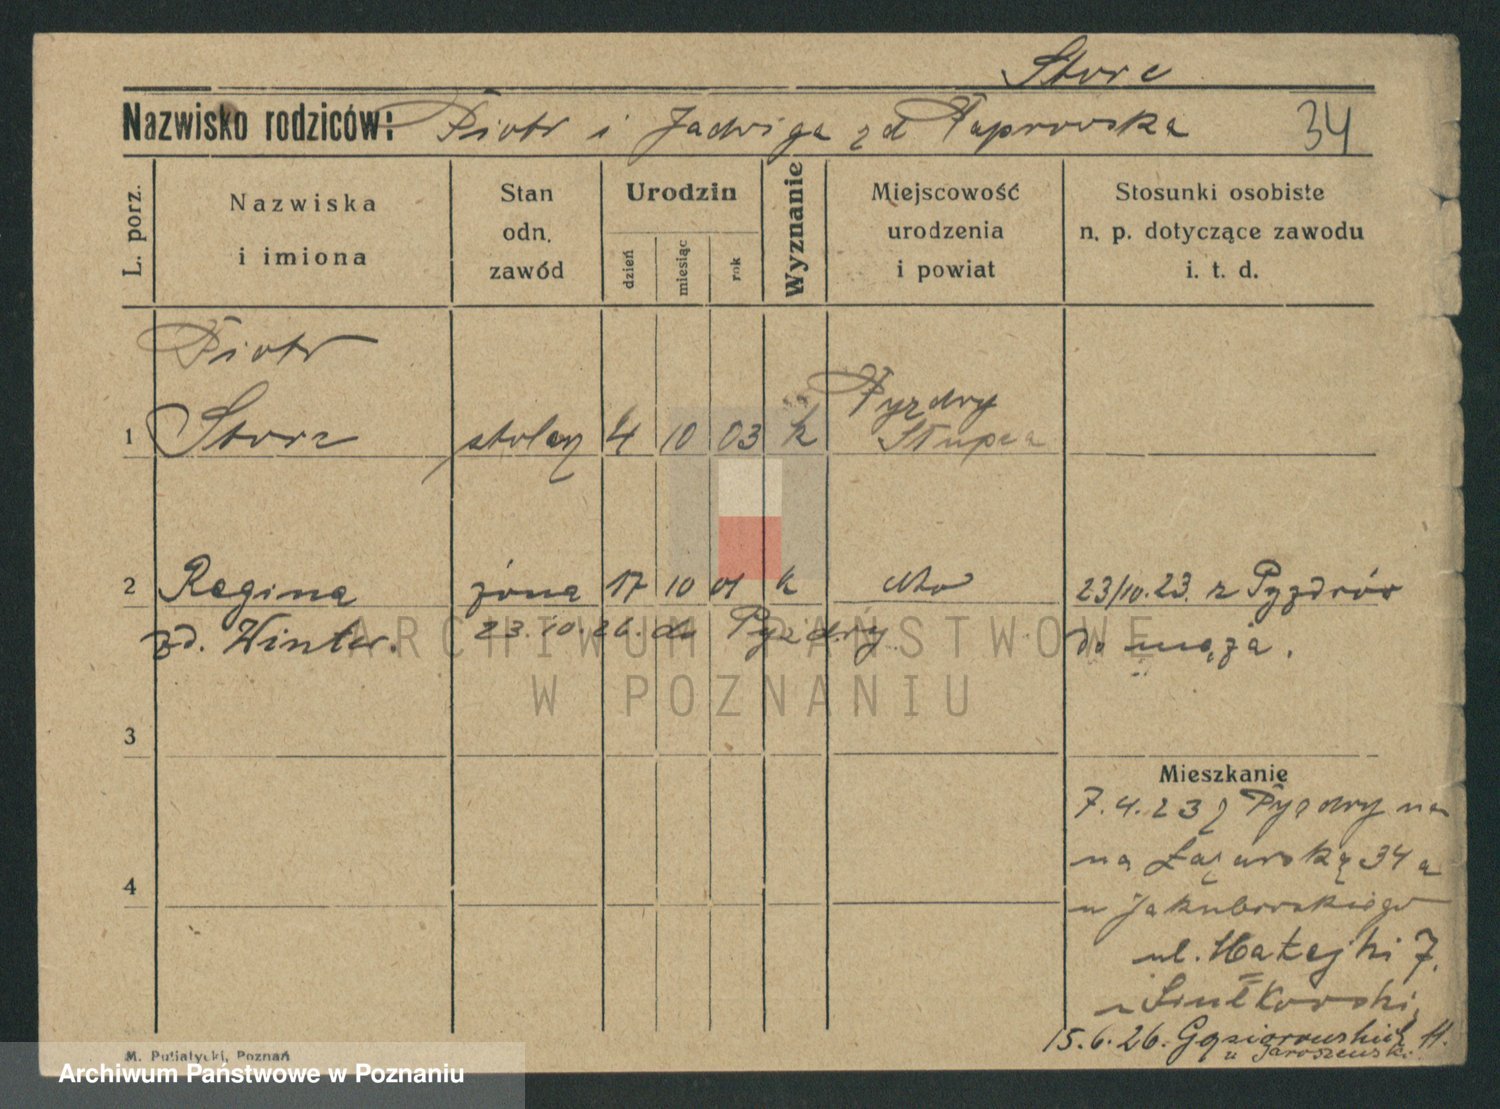 Storc
Nazwisko rodziców: Piotr i Jadwiga zd Paprowska 34
L. porz.
Nazwiska i imiona
Stan odn. zawód
Urodzin
dzień
miesiąc
rok
Wyznanie
Miejscowość urodzenia i powiat
Stosunki osobiste n. p. dotyczące zawodu i. t. d.
Piotr
1 Storz stolarz 4 10 03 k Pyzdry
Słupca
2 Regina żona 17 10 01 k 23/10.23. z Pyzdrów
zd. Winter. 23.10.26. do Pyzdry do męża.
3
Mieszkanie
7.4.23 z Pyzdry
na Łazarską 34 a
u Jakubowskiego
4
ul. Matejki 7.
15.6.26. Gąsiorowskich 11.
u Jaroszewski
M. Putiatycki, Poznań
ARCHIWUM PAŃSTWOWE
W POZNANIU
Archiwum Państwowe w Poznaniu